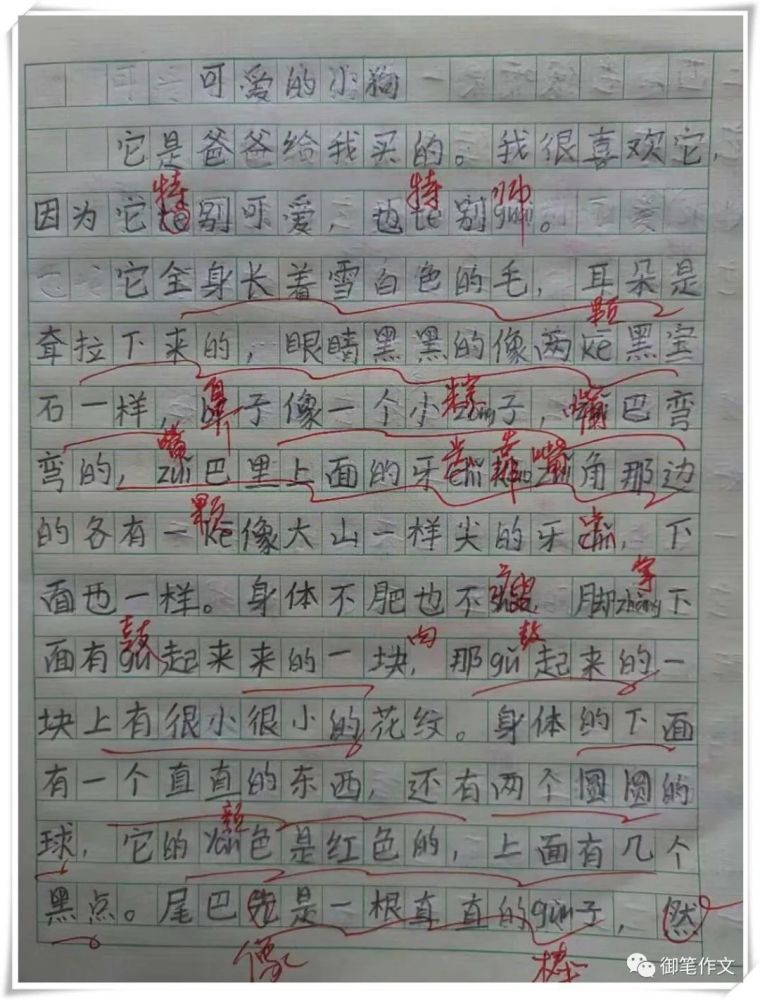 可爱的小狗
它是爸爸给我买的。我很喜欢它,
特 特 帅
因为它te别可爱,也te别shuài。
它全身长着雪白色的毛,耳朵是
颗
耷拉下来的,眼睛黑黑的像两kē黑宝
鼻 粽 嘴
石一样,bí子像一个小zòng子,zuǐ巴弯
嘴 嘴
弯的,zuǐ巴里上面的牙chǐ kào zuǐ角那边
颗 齿
的各有一kē像大山一样尖的牙chǐ,下
掌
面也一样。身体不肥也不shòu,脚zhǎng下
鼓 肉 鼓
面有gǔ起来来的一块,那gǔ起来的一
块上有很小很小的花纹。身体的下面
有一个直直的东西,还有两个圆圆的
颜
球,它的yán色是红色的,上面有几个
黑点。尾巴先是一根直直的gùn子,然
像 棒
御笔作文